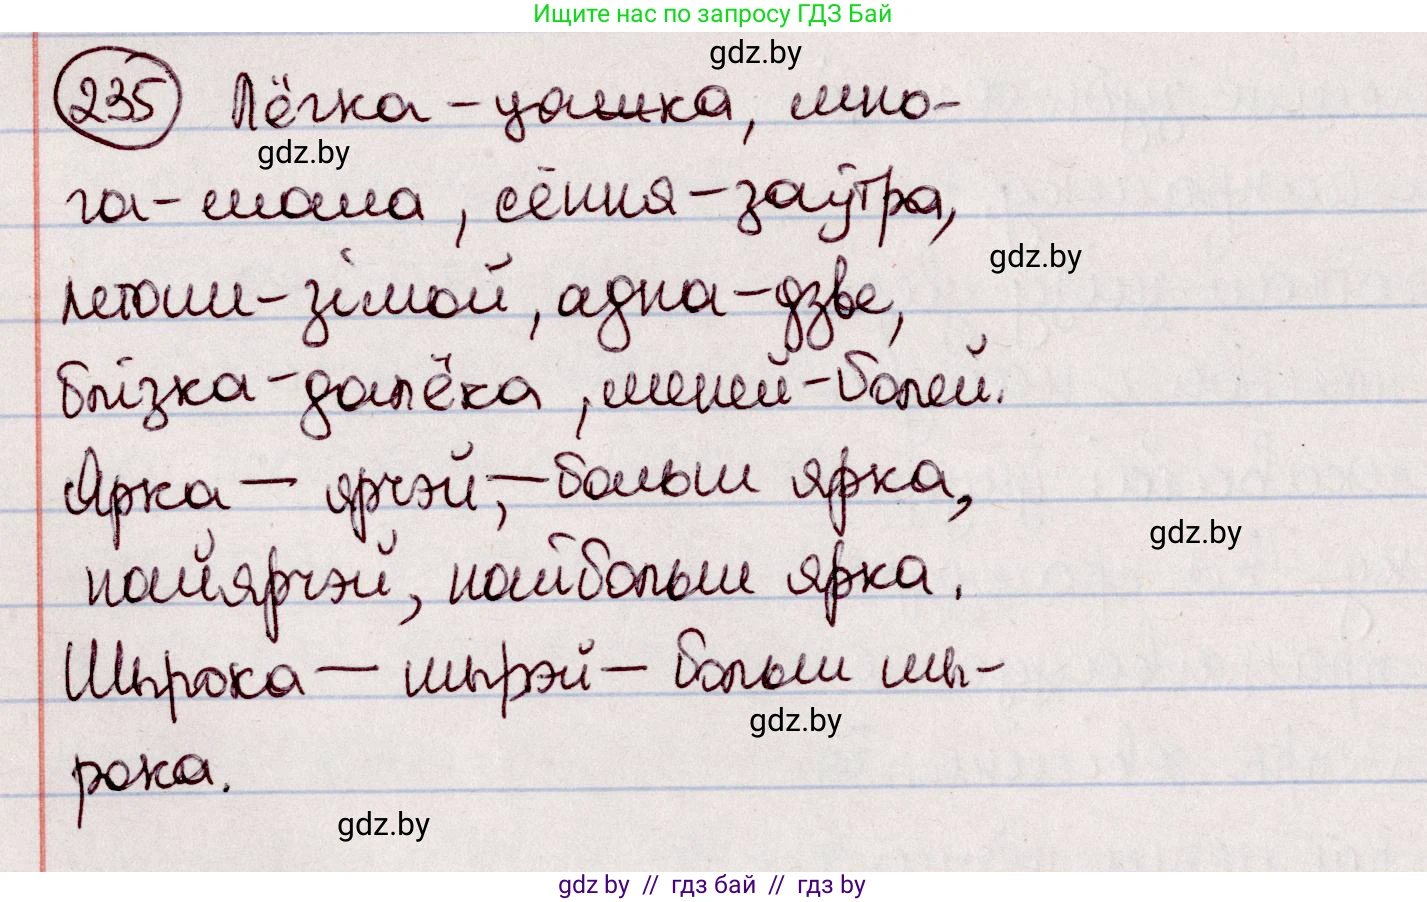 Ищите нас по запросу ГДЗ Бай
gdz.by
235 Лёгка - цяжка, мно-
gdz.by
га - мала, сёння - заўтра,
gdz.by
летам - зімой, адна - дзве,
блізка - далёка, меней - болей.
Ярка — ярчэй, — больш ярка,
gdz.by
найярчэй, найбольш ярка.
Шырока — шырэй — больш шы-
gdz.by
рока.
gdz.by
gdz by // гдз бай // гдз by